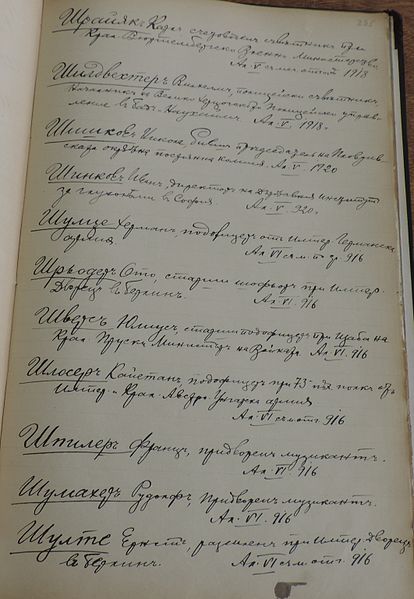 235
Шрайякъ Карлъ съдовенъ съветникъ при
Крал. Вюртембергско Военно Министерство
Ал. V съ мечове отг. 1918
Шилдвехтеръ Вилхелмъ, полицейски съветникъ,
Началникъ на Велико Херцогското Полицейско управ-
ление въ Бадъ-Наухаймъ. Ал. V. 1918 г.
Шишковъ Никола, бивш председатель на Пловдив-
ската окръжна постоянна комисия. Ал. V 1920
Шинковъ Иванъ, директоръ на Държавния институтъ
за глухонѣми въ София. Ал. V. 920 г.
Шулце Херманъ, подофицеръ отъ Импер. Германска
армия Ал. VI съ м. отг. 916
Шрьодеръ Ото, старши шофьоръ при Импер.
Дворецъ въ Берлинъ. Ал. VI. 916
Шверсъ Юлиусъ, старши подофицеръ при Щаба на
Крал. Пруски Министъръ на Войната Ал. VI. 916
Шлосеръ Кайетанъ, подофицеръ при 73-ия пѣх. полкъ отъ
Импер. и Крал. Австро-Унгарска армия
Ал. VI съ м. отг. 916
Шпилеръ Францъ, придворенъ музикантъ.
Ал. VI. 916
Шумахеръ Рудолфъ, придворенъ музикантъ.
Ал. VI. 916
Шулте Ернстъ, при Импер. Дворецъ
въ Берлинъ. Ал. VI съ м. отг. 916